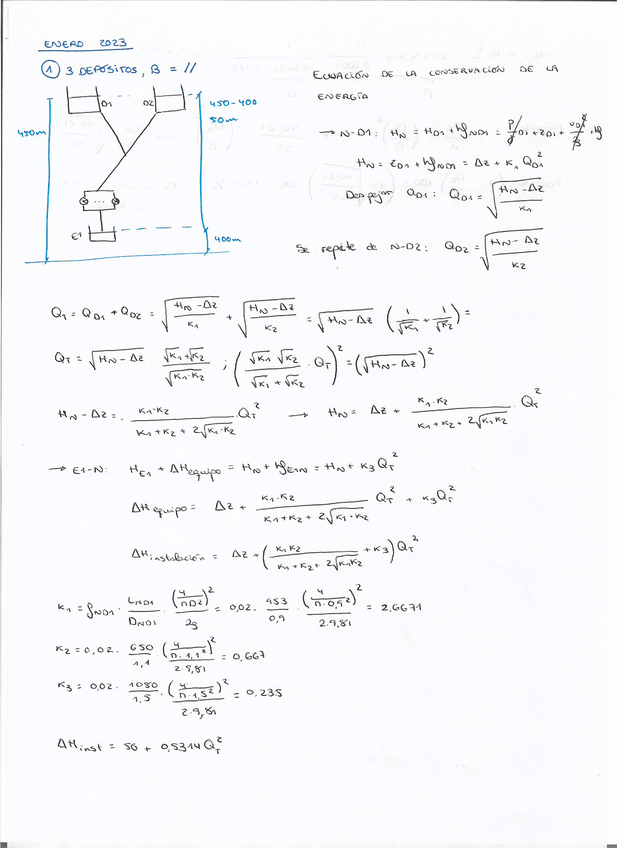 ENERO 2023
① 3 DEPÓSITOS, B = //
ECUACIÓN DE LA CONSERVACIÓN DE LA
ENERGÍA
D1 D2
450-400
50m
450m
E1
400m
→ N-D1: H_N = H_D1 + hf_ND1 = P/γ_D1 + z_D1 + v_D1²/2g + hf
H_N = z_D1 + hf_ND1 = Δz + K₁ Q_D1²
Despejar Q_D1: Q_D1 = √((H_N - Δz)/K₁)
Se repite de N-D2: Q_D2 = √((H_N - Δz)/K₂)
Q_T = Q_D1 + Q_D2 = √((H_N - Δz)/K₁) + √((H_N - Δz)/K₂) = √(H_N - Δz) (1/√K₁ + 1/√K₂) =
Q_T = √(H_N - Δz) · (√K₁ + √K₂)/√(K₁·K₂) ; ((√K₁ √K₂)/(√K₁ + √K₂) · Q_T)² = (√(H_N - Δz))²
H_N - Δz = · (K₁·K₂)/(K₁ + K₂ + 2√(K₁·K₂)) · Q_T² → H_N = Δz + (K₁·K₂)/(K₁ + K₂ + 2√(K₁K₂)) · Q_T²
→ E1-N: H_E1 + ΔH_equipo = H_N + hf_E1N = H_N + K₃ Q_T²
ΔH equipo = Δz + (K₁·K₂)/(K₁ + K₂ + 2√(K₁·K₂)) Q_T² + K₃Q_T²
ΔH instalación = Δz + ((K₁K₂)/(K₁ + K₂ + 2√(K₁K₂)) + K₃) Q_T²
K₁ = f_ND1 · L_ND1/D_ND1 · (4/πD²)²/2g = 0,02 · 953/0,9 · (4/(π·0,9²))²/(2·9,81) = 2,6671
K₂ = 0,02 · 650/1,1 · (4/(π·1,1²))²/(2·9,81) = 0,667
K₃ = 0,02 · 1080/1,5 · (4/(π·1,5²))²/(2·9,81) = 0,235
ΔH inst = 50 + 0,5314 Q_T²